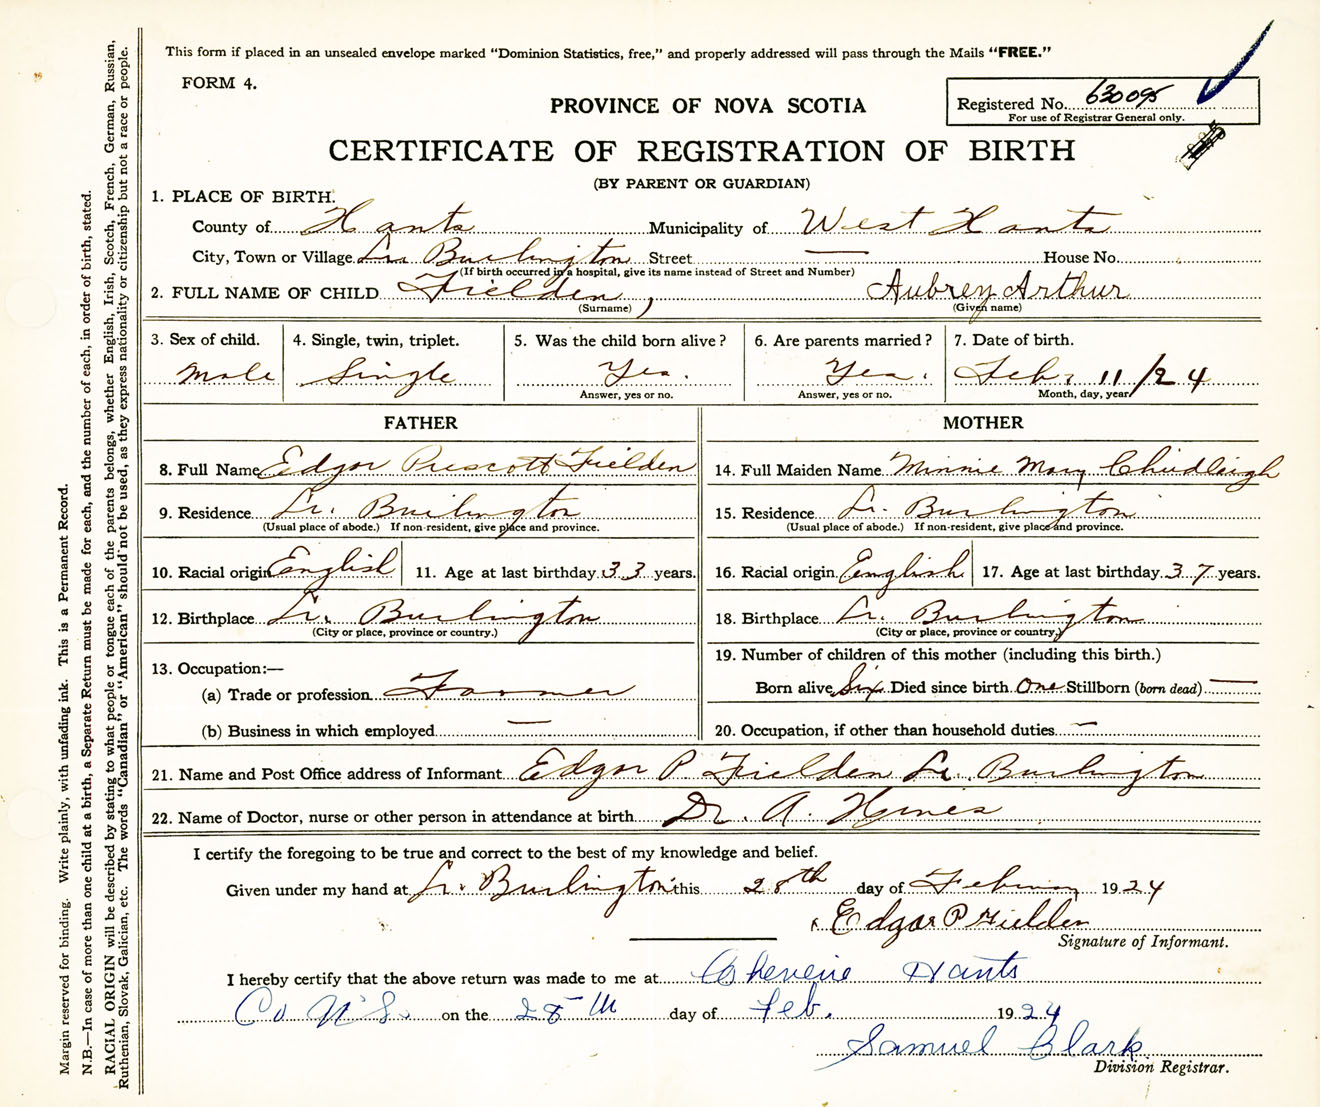 This form if placed in an unsealed envelope marked "Dominion Statistics, free," and properly addressed will pass through the Mails "FREE."
FORM 4.
PROVINCE OF NOVA SCOTIA
Registered No. 630095
For use of Registrar General only.
CERTIFICATE OF REGISTRATION OF BIRTH
(BY PARENT OR GUARDIAN)
1. PLACE OF BIRTH.
County of Hants Municipality of West Hants
City, Town or Village Lr Burlington Street — House No.
(If birth occurred in a hospital, give its name instead of Street and Number)
2. FULL NAME OF CHILD Fielden, Aubrey Arthur
(Surname) (Given name)
3. Sex of child. 4. Single, twin, triplet. 5. Was the child born alive? 6. Are parents married? 7. Date of birth.
Male Single Yes. Yes. Feb. 11/24
Answer, yes or no. Answer, yes or no. Month, day, year
FATHER MOTHER
8. Full Name Edgar Prescott Fielden 14. Full Maiden Name Minnie Mary Chudleigh
9. Residence Lr. Burlington 15. Residence Lr. Burlington
(Usual place of abode.) If non-resident, give place and province. (Usual place of abode.) If non-resident, give place and province.
10. Racial origin English 11. Age at last birthday 33 years. 16. Racial origin English 17. Age at last birthday 37 years.
12. Birthplace Lr. Burlington 18. Birthplace Lr. Burlington
(City or place, province or country.) (City or place, province or country.)
19. Number of children of this mother (including this birth.)
13. Occupation:—
(a) Trade or profession Farmer Born alive Six Died since birth One Stillborn (born dead) —
(b) Business in which employed — 20. Occupation, if other than household duties —
21. Name and Post Office address of Informant Edgar P Fielden Lr. Burlington
22. Name of Doctor, nurse or other person in attendance at birth Dr. A.
I certify the foregoing to be true and correct to the best of my knowledge and belief.
Given under my hand at Lr. Burlington this 28th day of February 1924
Edgar P Fielden
Signature of Informant.
I hereby certify that the above return was made to me at Hants
Co N.S. on the 28th day of Feb. 1924
Samuel Clark
Division Registrar.
Margin reserved for binding. Write plainly, with unfading ink. This is a Permanent Record.
N.B.—In case of more than one child at a birth, a Separate Return must be made for each, and the number of each, in order of birth, stated.
RACIAL ORIGIN will be described by stating to what people or tongue each of the parents belongs, whether English, Irish, Scotch, French, German, Russian,
Ruthenian, Slovak, Galician, etc. The words "Canadian" or "American" should not be used, as they express nationality or citizenship but not a race or people.